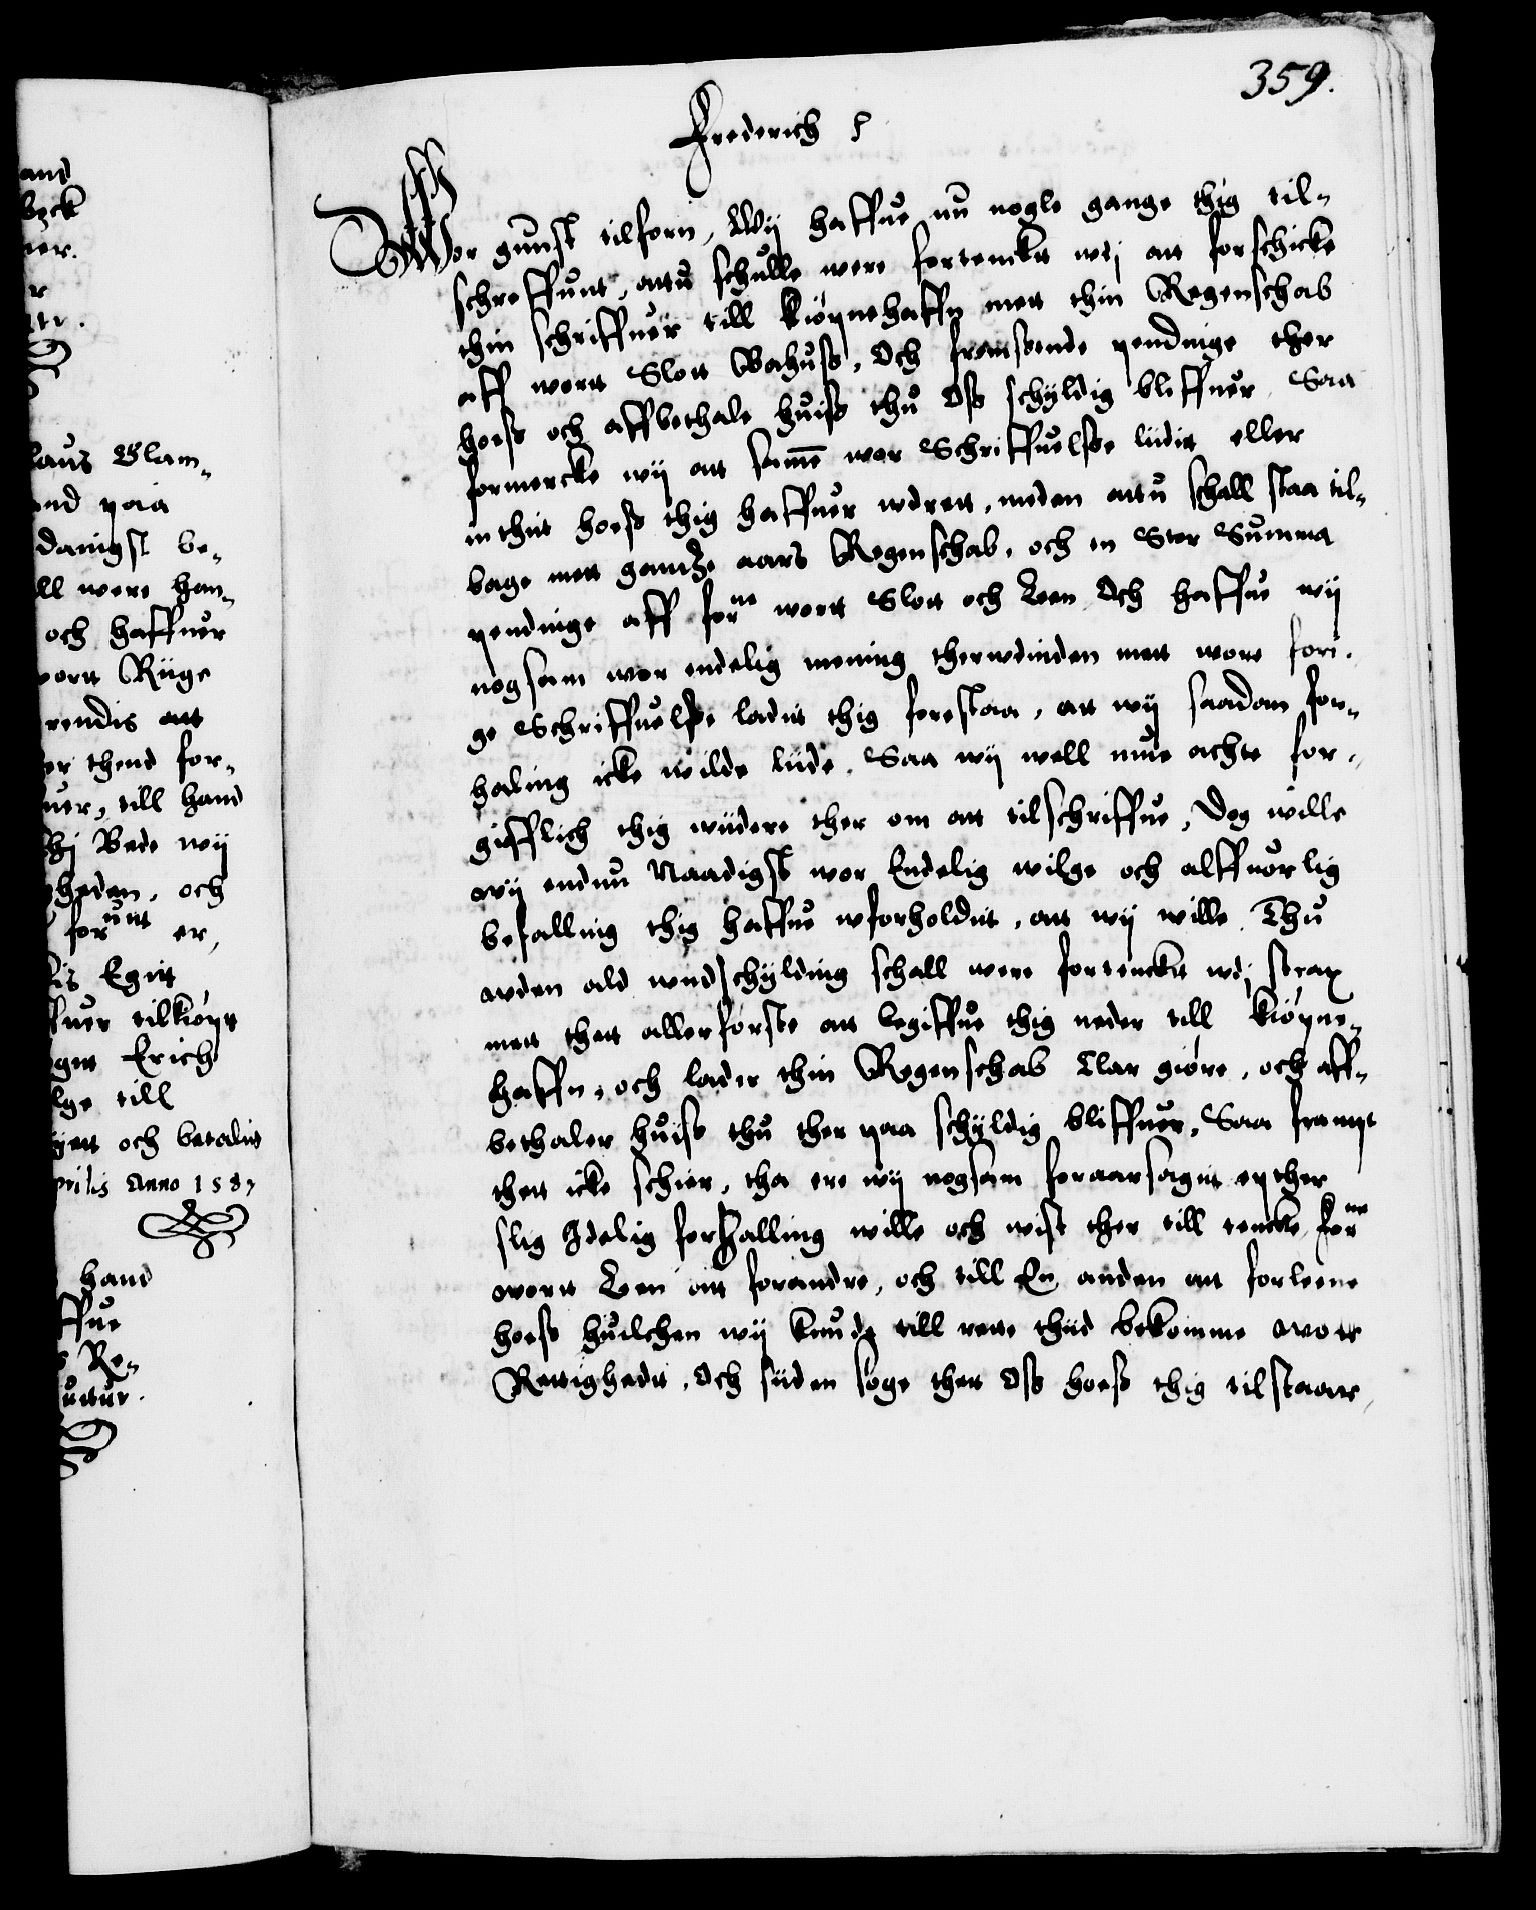 359.
Frederich 2
Wor gunst tilforn, Wij haffue nu nogle gange thig til-
schreffunt, attu schulle were fortenckt udj att forschicke
thin schriffuer till Kiøpnehaffn mett thin Regenschab
aff wortt Slott Bahuss, Och fremsende pendinge ther
hoess och affbethale huiss thu Oss schyldig bliffuer, Saa
formercke wij att samme wor Schriffuelsse liidit eller
inthit hoess thig haffuer udrett, meden attu schall staa til-
bage mett gandtze aars Regenschab, och en Stor Summa
pendinge aff forne wortt Slott och Leen Och haffue wij
nogsam wor endelig mening therudinden mett wore fori-
ge Schriffuelsse ladit thig forestaa, att wij saadan for-
haling icke wilde liide, Saa wij well nue achte for-
giefflich thig wiidere ther om att tilschriffue, Dog wille
wij endnu Naadigst wor Endelig wilge och alffuorlig
befalling thig haffue uforholdit, att wij wille, Thu
uden ald undschylding schall were fortenckt udj strax
mett thett allerforste att begiffue thig neder till Kiøpne-
haffn, och lader thin Regenschab Clar giøre, och aff-
bethaler huiss thu ther paa schyldig bliffuer, Saa frampt
thett icke schier, tha ere wij nogsam foraarsagit epther
slig Idelig forhalling wille och wist ther till tencke forne
wortt Leen att forandre, och till En anden att forleene
hoess huilchen wij kunde till rette thiid bekomme wore
Rettighedt, Och siiden søge thett Oss hoess thig tilstaar,
and
beck
er.
r
tr.
laus Glam-
and paa
danigst be-
ll were han-
och haffuer
wortt Riige
rendis att
er thend for-
uer, till hand
thj Bede wij
gheden, och
forunt er,
is Egitt
ffuer tilkiøpt
gen Erich
lge till
iyett och betalit
prilis Anno 1587
hand
ffue
Re-
untur.